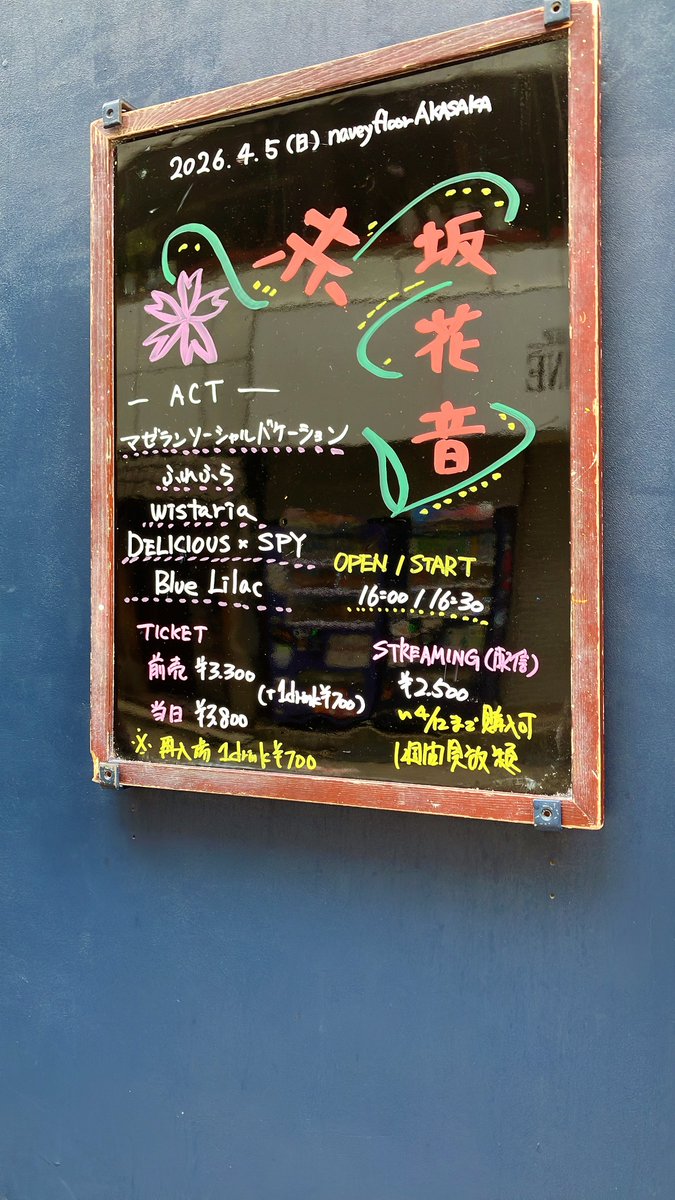 2026.4.5(日) naveyfloor AKASAKA
坂花音
— ACT —
マゼランソーシャルバケーション
ふれふら
wistaria
DELICIOUS × SPY
Blue Lilac
OPEN / START
16:00 / 16:30
TICKET
前売 ¥3.300
(+1drink¥700)
当日 ¥3.800
※ 再入場 1drink¥700
STREAMING(配信)
¥2.500
4/12まで購入可
1週間見放題